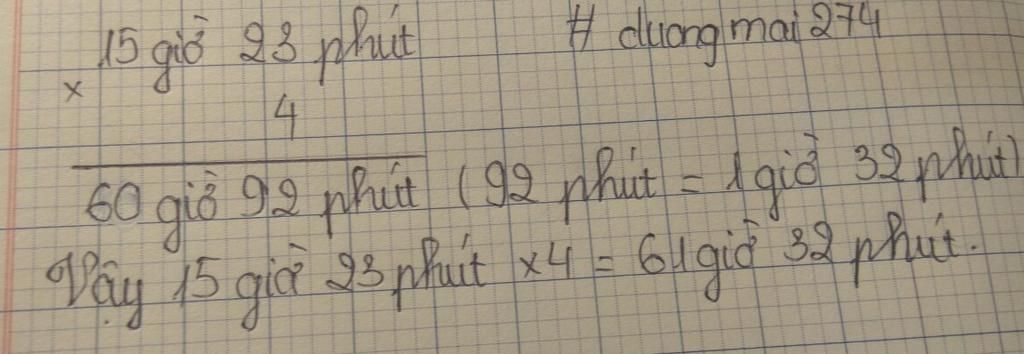 15 giờ 23 phút # duongmai274
×
4
60 giờ 92 phút (92 phút = 1 giờ 32 phút)
Vậy 15 giờ 23 phút ×4 = 61 giờ 32 phút.